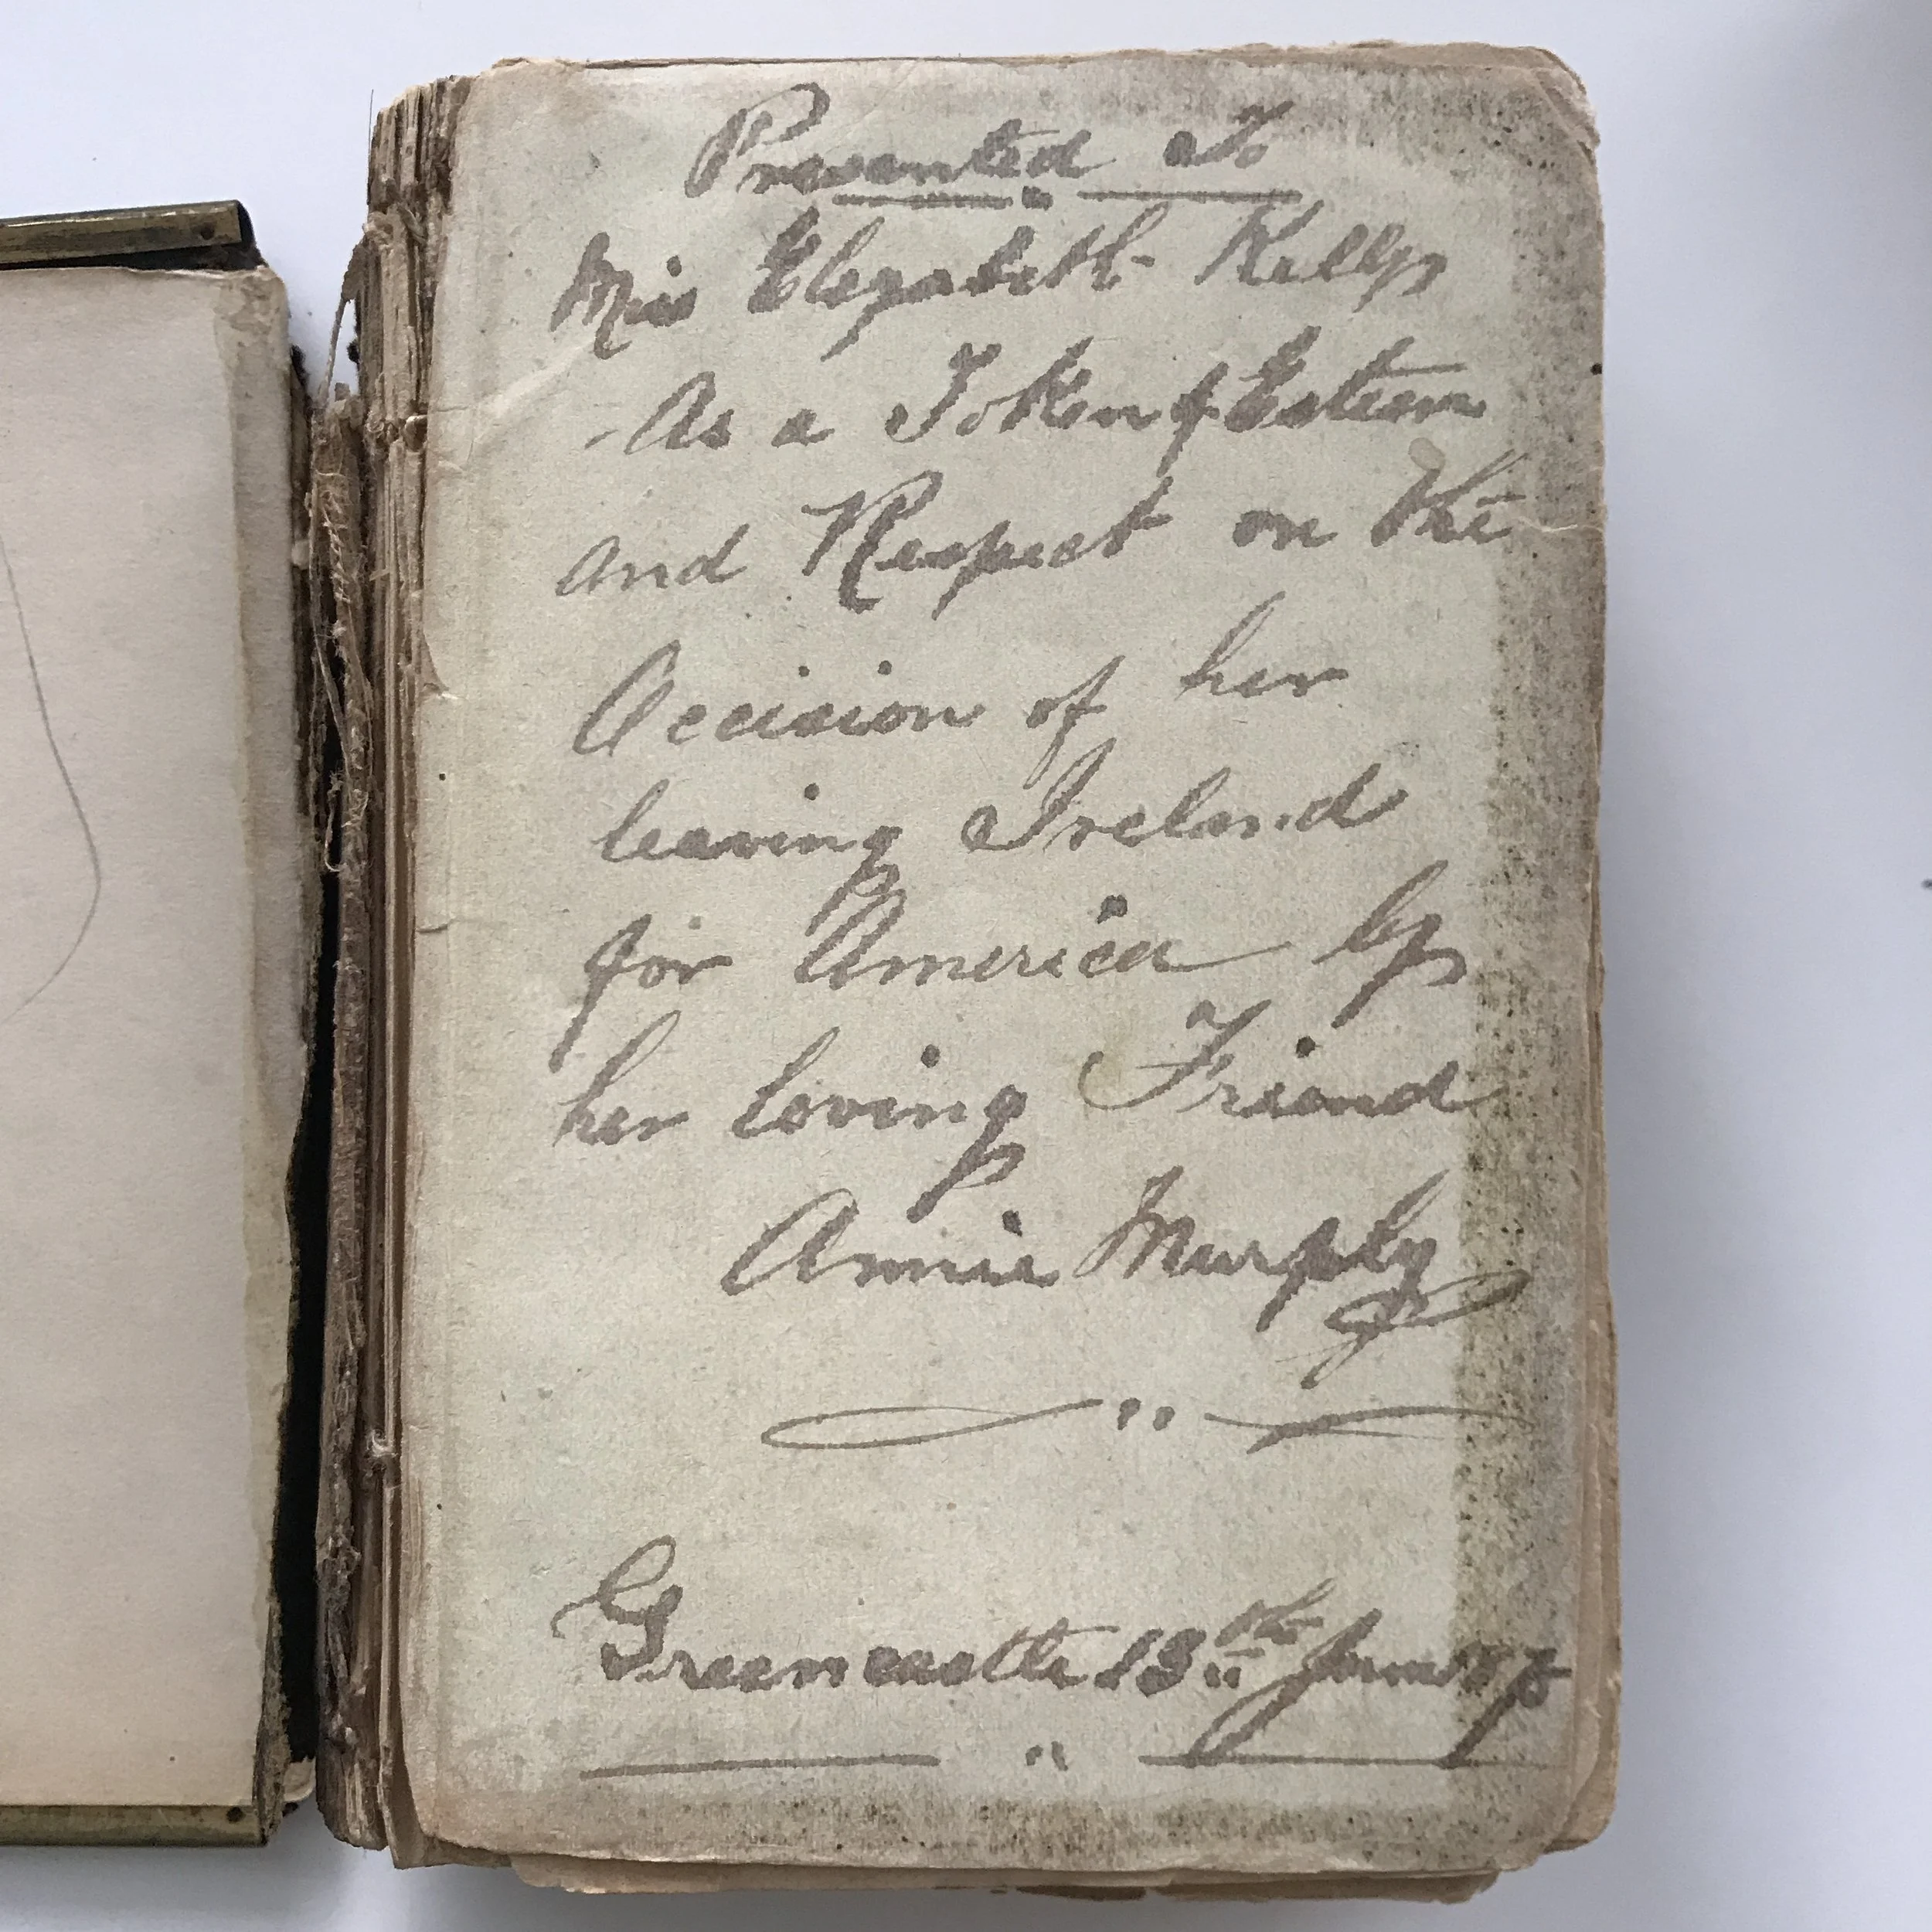 Presented To
Miss Elezabeth Kelly
As a Token of Esteem
and Respect on the
Occision of her
leaving Ireland
for America by
her loving Friend
Annie Murphy
Greencastle 13th January